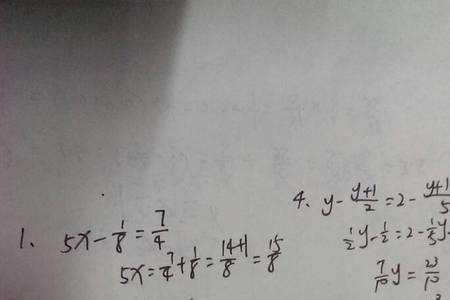 1. 5x - 1/8 = 7/4
5x = 7/4 + 1/8 = 14+1/8 = 15/8
4. y - y+1/2 = 2 - y+1/5
1/2y - 1/2 = 2 - 1/5y -
7/10y = 23/10